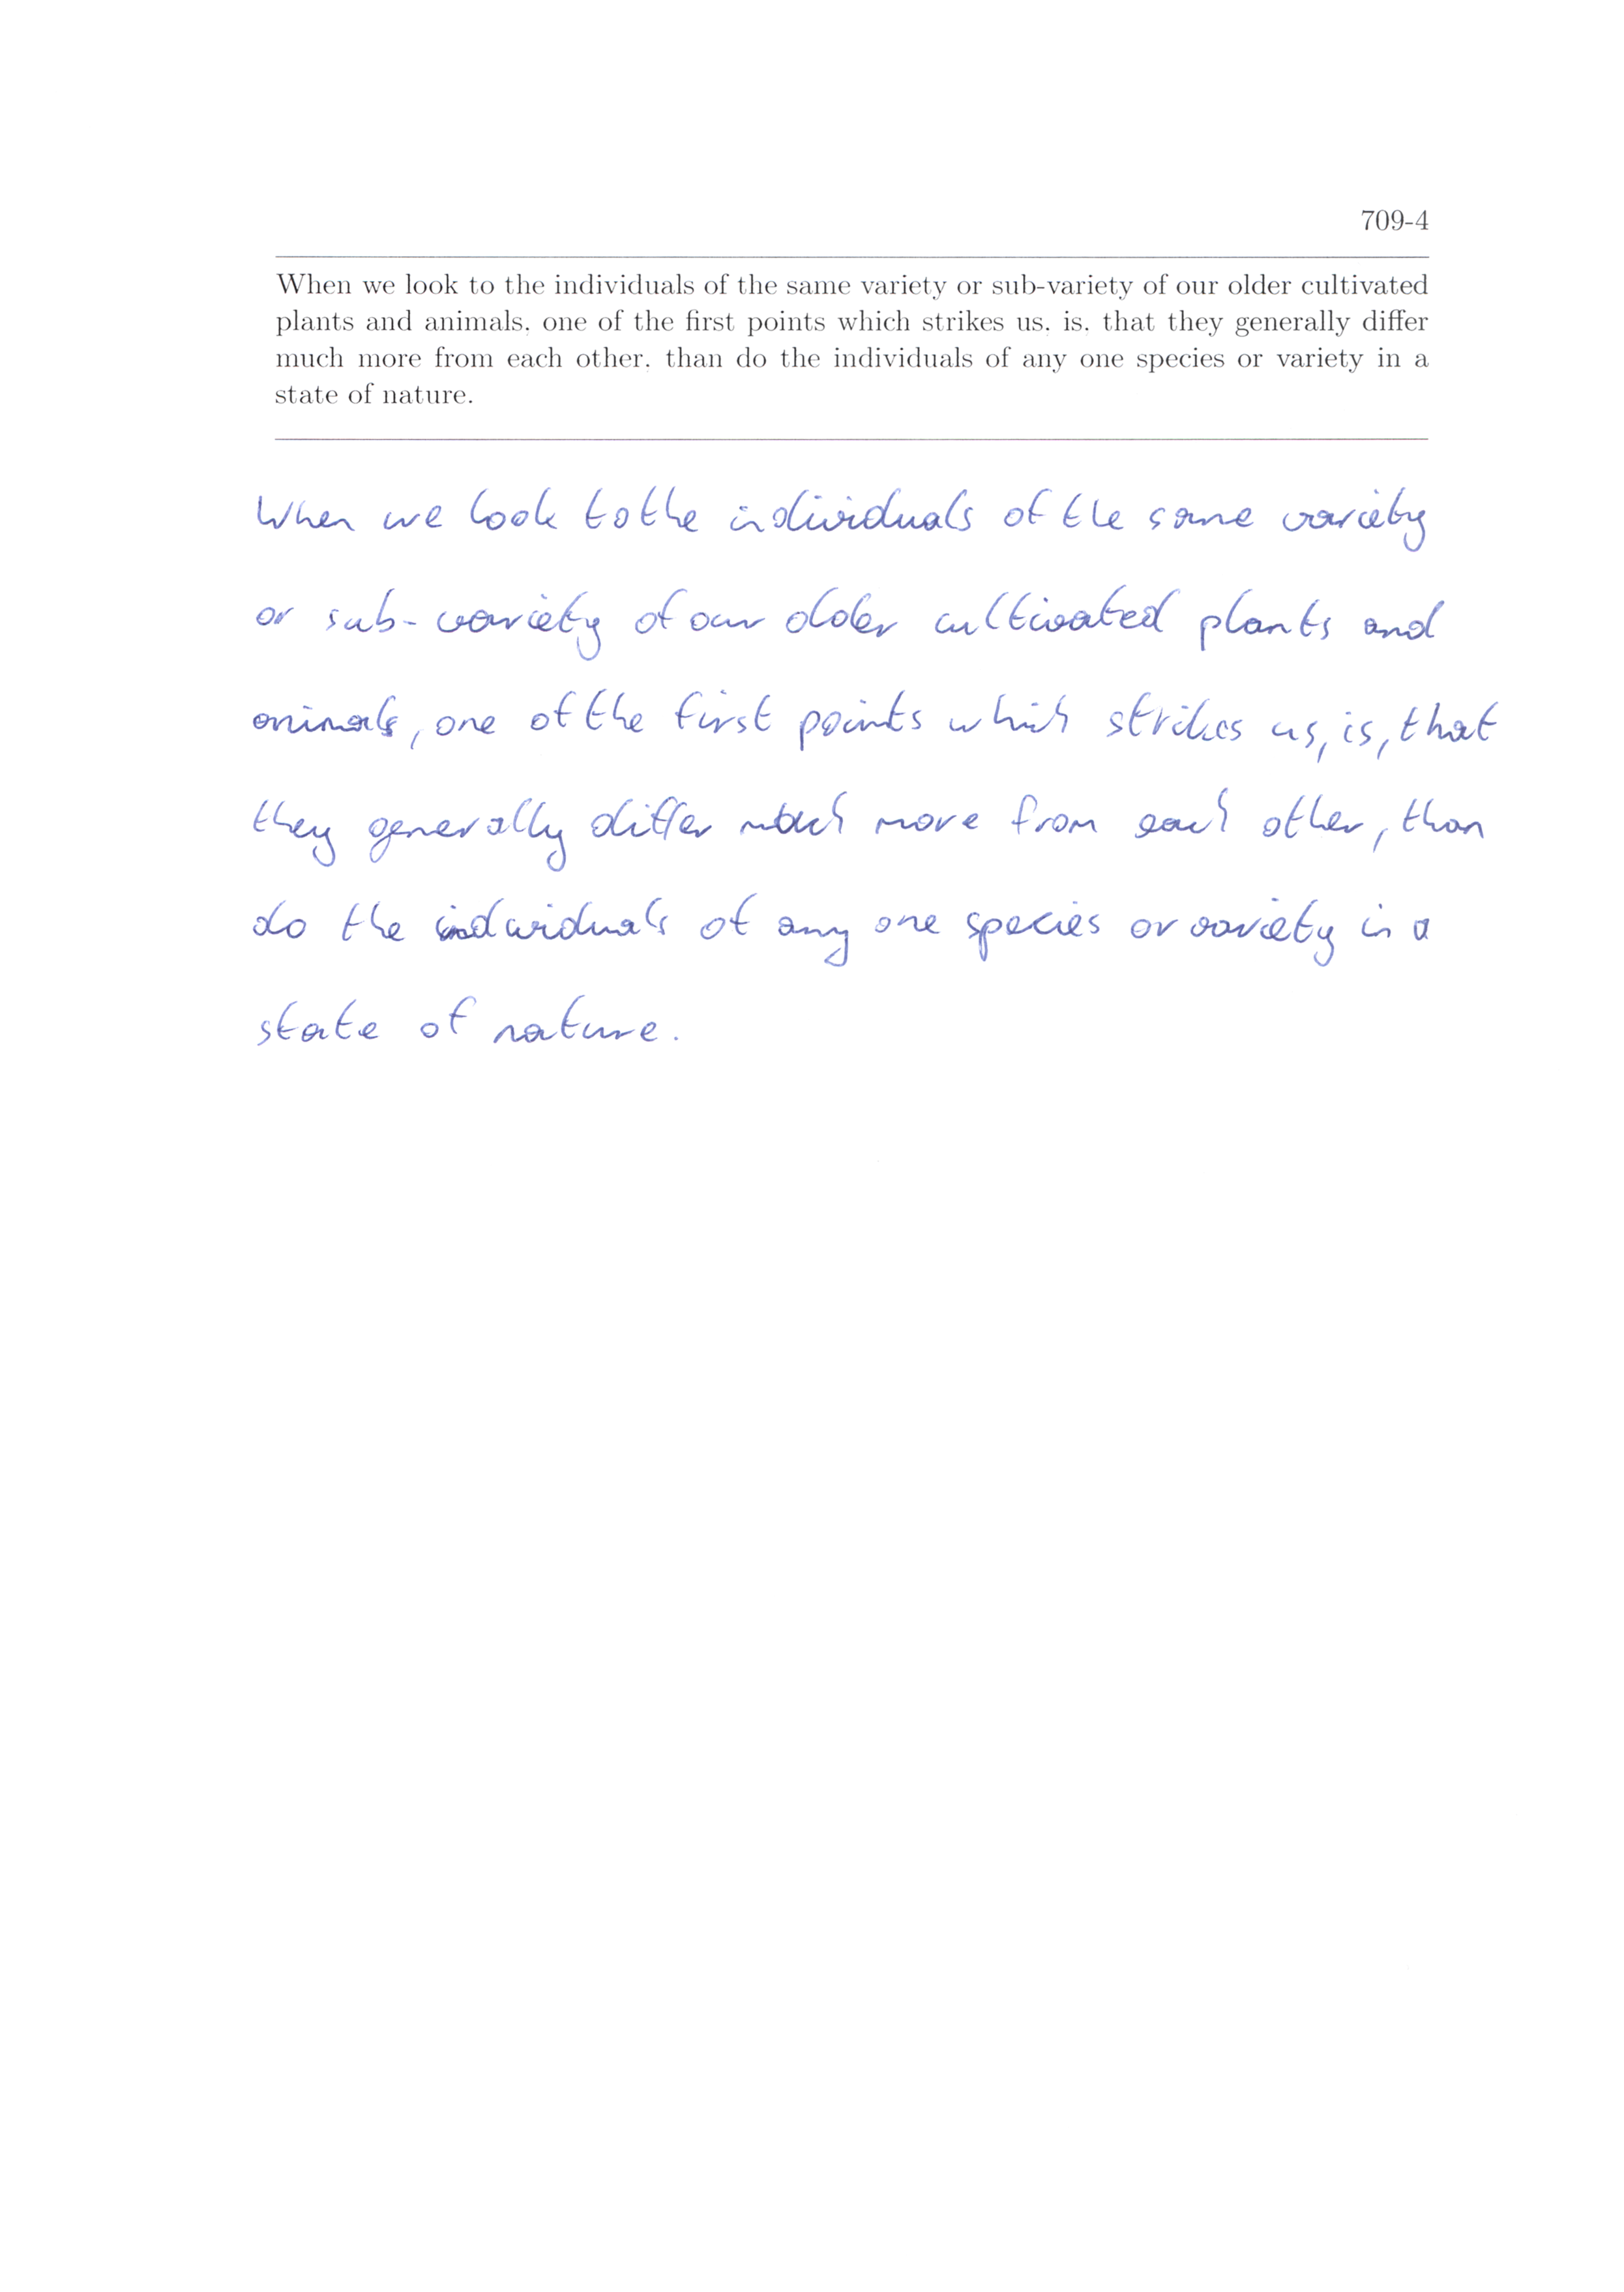 709-4
When we look to the individuals of the same variety or sub-variety of our older cultivated
plants and animals, one of the first points which strikes us, is, that they generally differ
much more from each other, than do the individuals of any one species or variety in a
state of nature.
When we look to the individuals of the same variety
or sub-variety of our older cultivated plants and
animals, one of the first points which strikes us, is, that
they generally differ much more from each other, than
do the individuals of any one species or variety in a
state of nature.